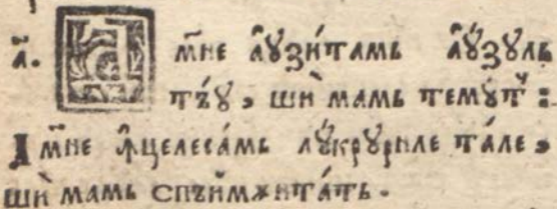 а҃. Д мⷭ҇не а҆ꙋзи́тамь а҆ꙋ́зꙋль
тъ́ꙋ, шѝ мамь темꙋ́тꙿ :
Дмⷭ҇не ꙟ҆целеса́мь лꙋ́крꙋриле та́ле,
шѝ мамь спъи́мѫнта́ть.